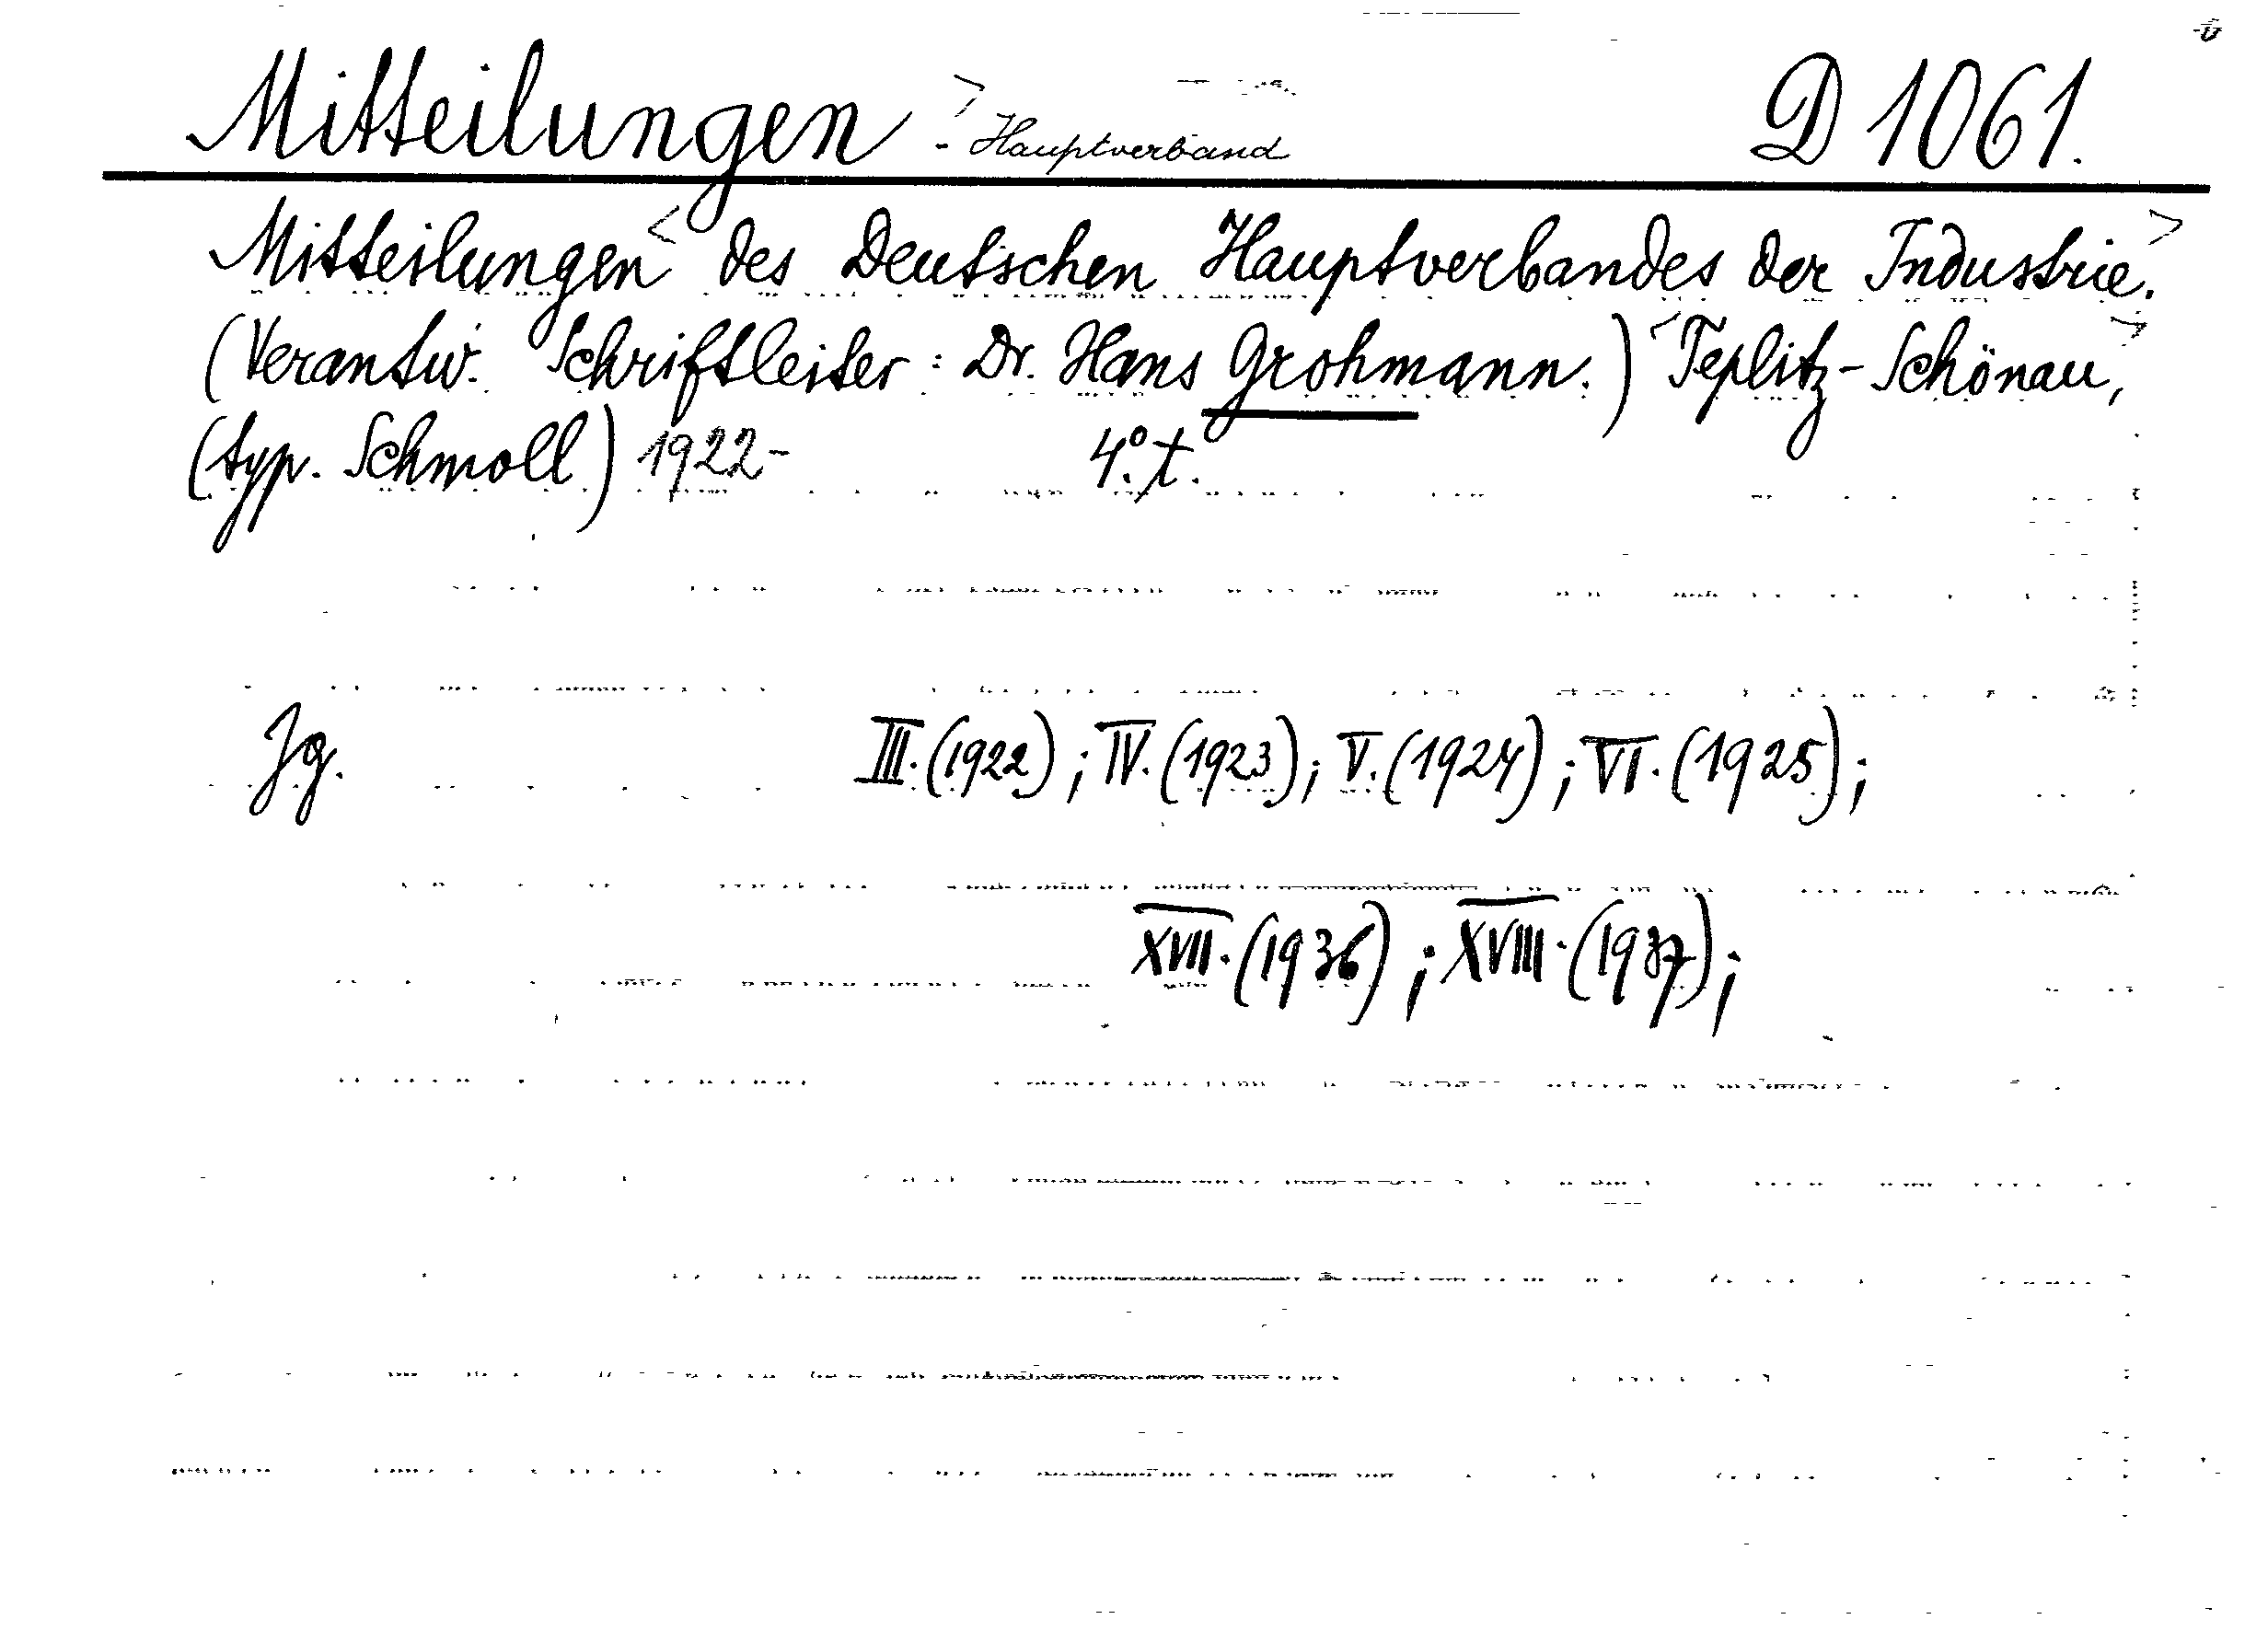 Mitteilungen - Hauptverband D 1061.
Mitteilungen des Deutschen Hauptverbandes der Industrie.
(Verantw. Schriftleiter: Dr. Hans Grohmann.) Teplitz-Schönau,
(typ. Schmoll) 1922- 4°. t.
Jg. III. (1922); IV. (1923); V. (1924); VI. (1925);
XVII. (1936); XVIII. (1937);